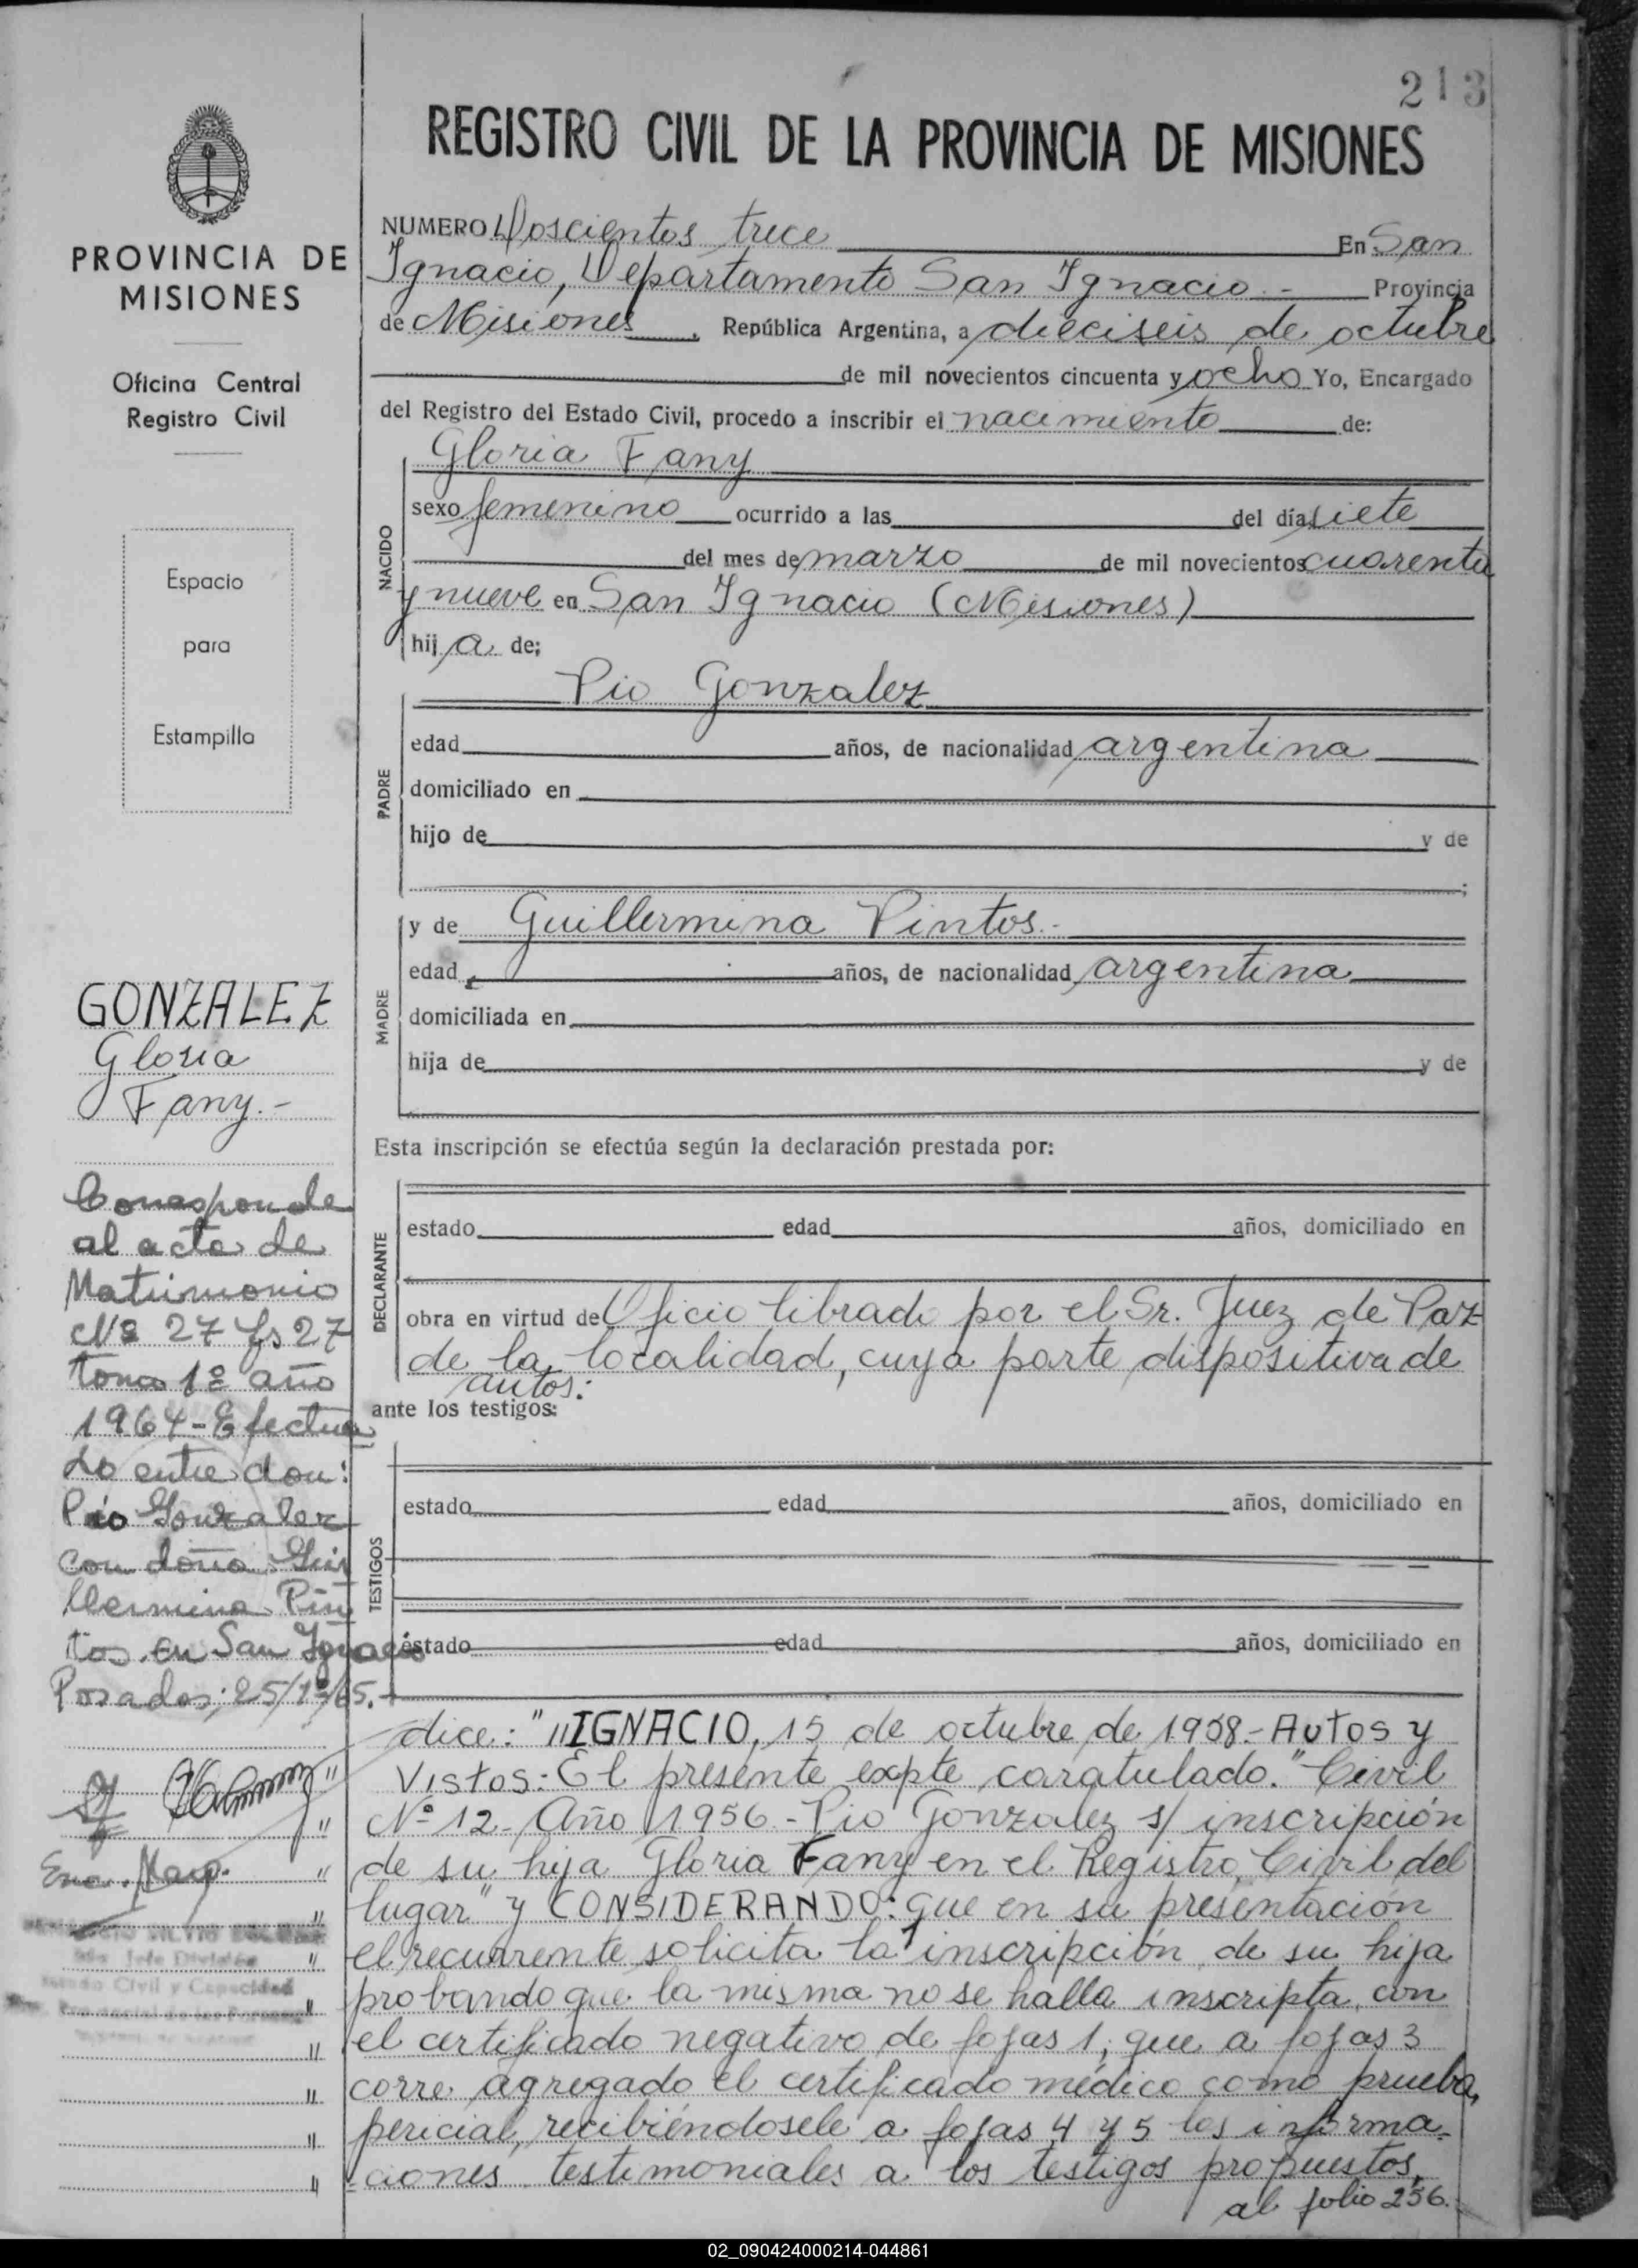 213
REGISTRO CIVIL DE LA PROVINCIA DE MISIONES
PROVINCIA DE
MISIONES
Oficina Central
Registro Civil
Espacio
para
Estampilla
GONZALEZ
Gloria
Fany.-
Corresponde
al acta de
Matrimonio
Nº 27 fs 27
tomo 1º año
1964 - Efectua
do entre don:
Pio Gonzalez
con doña Gui
llermina Pin
tos. en San Ignacio
Posadas; 25/1º/65.-
Enc. Marg.
Jefe División
Estado Civil y Capacidad
NUMERO Doscientos trece En San
Ignacio, Departamento San Ignacio.- Provincia
de Misiones, República Argentina, a dieciseis de octubre
de mil novecientos cincuenta y ocho Yo, Encargado
del Registro del Estado Civil, procedo a inscribir el nacimiento de:
NACIDO
Gloria Fany
sexo femenino ocurrido a las del día siete
del mes de marzo de mil novecientos cuarenta
y nueve en San Ignacio (Misiones)
hija de;
PADRE
Pio Gonzalez
edad años, de nacionalidad argentina
domiciliado en
hijo de y de
;
MADRE
y de Guillermina Pintos.-
edad años, de nacionalidad argentina
domiciliada en
hija de y de
Esta inscripción se efectúa según la declaración prestada por:
DECLARANTE
estado edad años, domiciliado en
obra en virtud de Oficio librado por el Sr. Juez de Paz
de la localidad, cuya parte dispositiva de
autos:
ante los testigos:
TESTIGOS
estado edad años, domiciliado en
estado edad años, domiciliado en
dice: "IIIGNACIO, 15 de octubre de 1958.- Autos y
Vistos: El presente expte caratulado. "Civil
Nº 12 - Año 1956 - Pio Gonzalez s/ inscripción
de su hija Gloria Fany en el Registro Civil del
lugar" y CONSIDERANDO: Que en su presentación
el recurrente solicita la inscripción de su hija
probando que la misma no se halla inscripta, con
el certificado negativo de fojas 1; que a fojas 3
corre agregado el certificado médico como prueba
pericial, recibiéndosele a fojas 4 y 5 las informa-
-ciones testimoniales a los testigos propuestos,
al folio 256.-
02_090424000214-044861